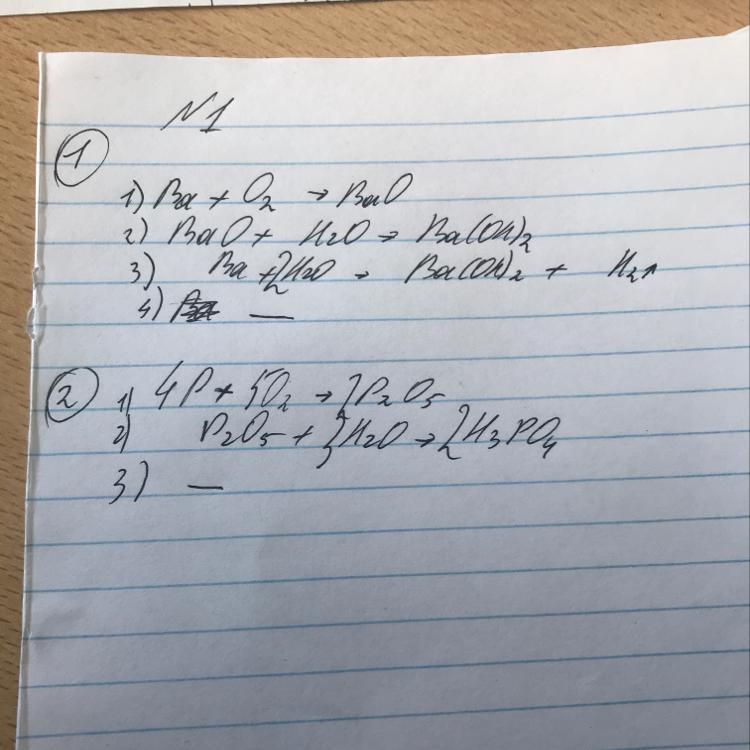 N1
①
1) Ba + O2 → BaO
2) BaO + H2O → Ba(OH)2
3) Ba + 2H2O → Ba(OH)2 + H2↑
4) —
② 1) 4P + 5O2 → 2P2O5
2) P2O5 + 3H2O → 2H3PO4
3) —